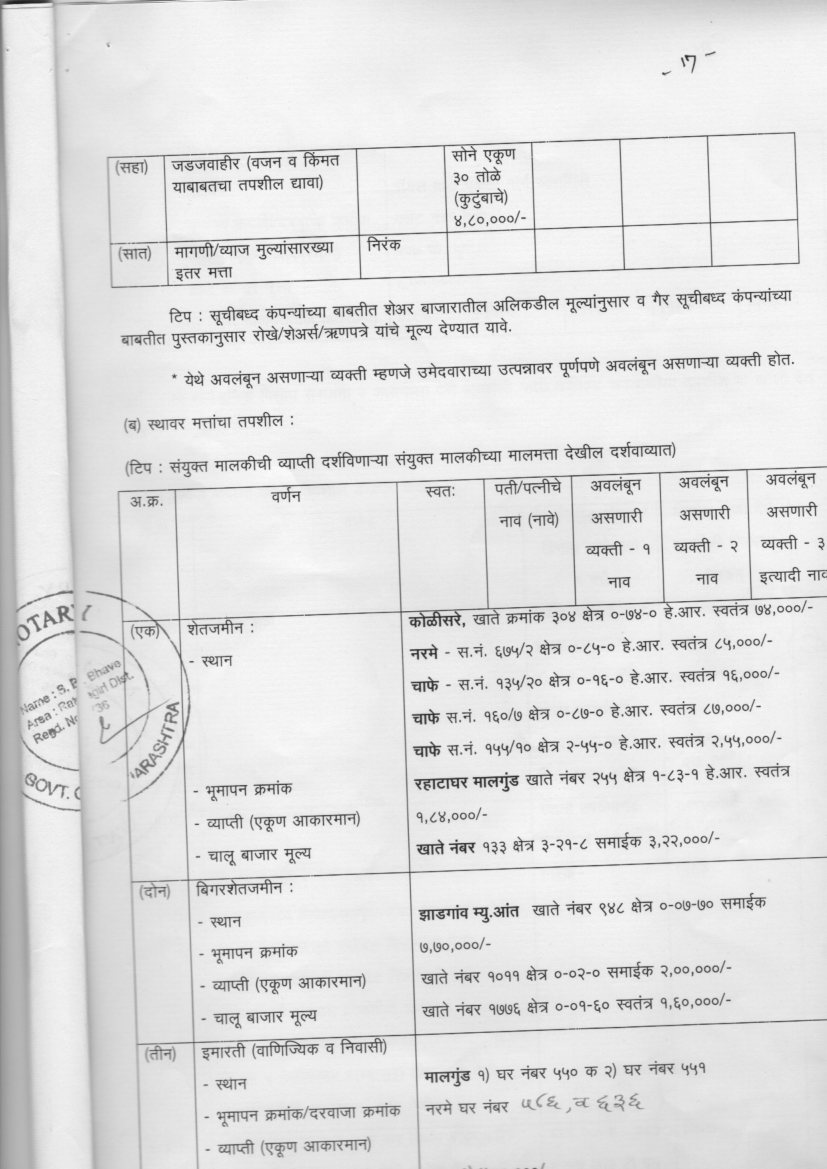 - १७ -
(सहा) जडजवाहीर (वजन व किंमत सोने एकूण
याबाबतचा तपशील द्यावा) ३० तोळे
(कुटुंबाचे)
४,८०,०००/-
(सात) मागणी/व्याज मुल्यांसारख्या निरंक
इतर मत्ता
टिप : सूचीबध्द कंपन्यांच्या बाबतीत शेअर बाजारातील अलिकडील मूल्यांनुसार व गैर सूचीबध्द कंपन्यांच्या
बाबतीत पुस्तकानुसार रोखे/शेअर्स/ऋणपत्रे यांचे मूल्य देण्यात यावे.
* येथे अवलंबून असणाऱ्या व्यक्ती म्हणजे उमेदवाराच्या उत्पन्नावर पूर्णपणे अवलंबून असणाऱ्या व्यक्ती होत.
(ब) स्थावर मत्तांचा तपशील :
(टिप : संयुक्त मालकीची व्याप्ती दर्शविणाऱ्या संयुक्त मालकीच्या मालमत्ता देखील दर्शवाव्यात)
अ.क्र. वर्णन स्वतः पती/पत्नीचे अवलंबून अवलंबून अवलंबून
नाव (नावे) असणारी असणारी असणारी
व्यक्ती - १ व्यक्ती - २ व्यक्ती - ३
नाव नाव इत्यादी नाव
(एक) शेतजमीन : कोळीसरे, खाते क्रमांक ३०४ क्षेत्र ०-७४-० हे.आर. स्वतंत्र ७४,०००/-
- स्थान नरमे - स.नं. ६७५/२ क्षेत्र ०-८५-० हे.आर. स्वतंत्र ८५,०००/-
चाफे - स.नं. १३५/२० क्षेत्र ०-१६-० हे.आर. स्वतंत्र १६,०००/-
चाफे स.नं. १६०/७ क्षेत्र ०-८७-० हे.आर. स्वतंत्र ८७,०००/-
चाफे स.नं. १५५/१० क्षेत्र २-५५-० हे.आर. स्वतंत्र २,५५,०००/-
- भूमापन क्रमांक रहाटाघर मालगुंड खाते नंबर २५५ क्षेत्र १-८३-१ हे.आर. स्वतंत्र
- व्याप्ती (एकूण आकारमान) १,८४,०००/-
- चालू बाजार मूल्य खाते नंबर १३३ क्षेत्र ३-२१-८ समाईक ३,२२,०००/-
(दोन) बिगरशेतजमीन :
- स्थान झाडगांव म्यु.आंत खाते नंबर ९४८ क्षेत्र ०-०७-७० समाईक
- भूमापन क्रमांक ७,७०,०००/-
- व्याप्ती (एकूण आकारमान) खाते नंबर १०११ क्षेत्र ०-०२-० समाईक २,००,०००/-
- चालू बाजार मूल्य खाते नंबर १७७६ क्षेत्र ०-०१-६० स्वतंत्र १,६०,०००/-
(तीन) इमारती (वाणिज्यिक व निवासी)
- स्थान मालगुंड १) घर नंबर ५५० क २) घर नंबर ५५१
- भूमापन क्रमांक/दरवाजा क्रमांक नरमे घर नंबर ५८६, व ६३६
- व्याप्ती (एकूण आकारमान)
NOTARY
Name : S. B. Bhave
Area : Ratnagiri Dist.
Regd. No
GOVT.
MAHARASHTRA